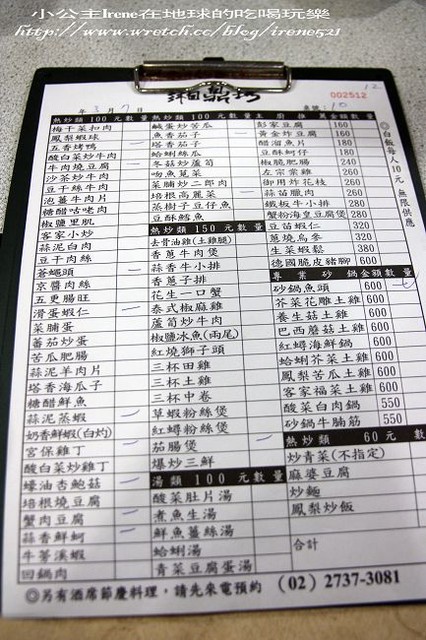 小公主Irene在地球的吃喝玩樂
http://www.wretch.cc/blog/irene521
002512
12
年 3月 7日
桌號:10
熱炒類 100元 數量
梅干菜扣肉
鳳梨蝦球
五香烤鴨
酸白菜炒牛肉
牛肉燒豆腐
沙茶炒牛肉
豆干絲牛肉
泡薑牛肉片
糖醋咕咾肉
椒鹽里肌
客家小炒
蒜泥白肉
豆干肉絲
蒼蠅頭
京醬肉絲
五更腸旺
滑蛋蝦仁
菜脯蛋
蕃茄炒蛋
苦瓜肥腸
蒜泥羊肉片
塔香海瓜子
糖醋鮮魚
蒜泥蒸蝦
奶香鮮蝦(白灼)
宮保雞丁
酸白菜炒雞丁
蠔油杏鮑菇
培根燒豆腐
蟹肉豆腐
蒜香鮮蚵
牛蒡溪蝦
回鍋肉
熱炒類 100元 數量
鹹蛋炒苦瓜
魚香茄子
塔香茄子
蛤蜊絲瓜
冬菇炒蘆筍
吻魚莧菜
菜脯炒二郎肉
培根高麗菜
蒸樹子豆仔魚
豆酥鱈魚
熱炒類 150元 數量
去骨油雞(土雞腿)
香蔥牛肉煲
蒜香牛小排
香蔥子排
花生一口蟹
泰式椒麻雞
蘆筍炒牛肉
椒鹽冰魚(兩尾)
紅燒獅子頭
三杯田雞
三杯土雞
三杯中卷
草蝦粉絲煲
紅蟳粉絲煲
茄腸煲
爆炒三鮮
湯類 100元 數量
酸菜肚片湯
煮魚生湯
鮮魚薑絲湯
蛤蜊湯
青菜豆腐蛋湯
主廚推薦 金額 數量
彭家豆腐 160
黃金炸豆腐 160
醋溜魚片 180
豆酥蚵仔 180
椒脆肥腸 240
左宗棠雞 260
御用炸花枝 260
蒜苗臘肉 260
鐵板牛小排 280
蟹粉海皇豆腐煲 280
豆苗蝦仁 320
蔥燒烏參 320
生菜蝦鬆 380
德國脆皮豬腳 600
專業砂鍋 金額 數量
砂鍋魚頭 600
芥菜花雕土雞 600
養生菇土雞 600
巴西蘑菇土雞 600
紅蟳海鮮鍋 600
蛤蜊芥菜土雞 600
鳳梨苦瓜土雞 600
客家福菜土雞 600
酸菜白肉鍋 550
砂鍋牛腩筋 550
熱炒類 60元 數量
炒青菜(不指定)
麻婆豆腐
炒麵
鳳梨炒飯
合計
◎白飯每人10元 無限供應
◎另有酒席節慶料理,請先來電預約 (02) 2737-3081